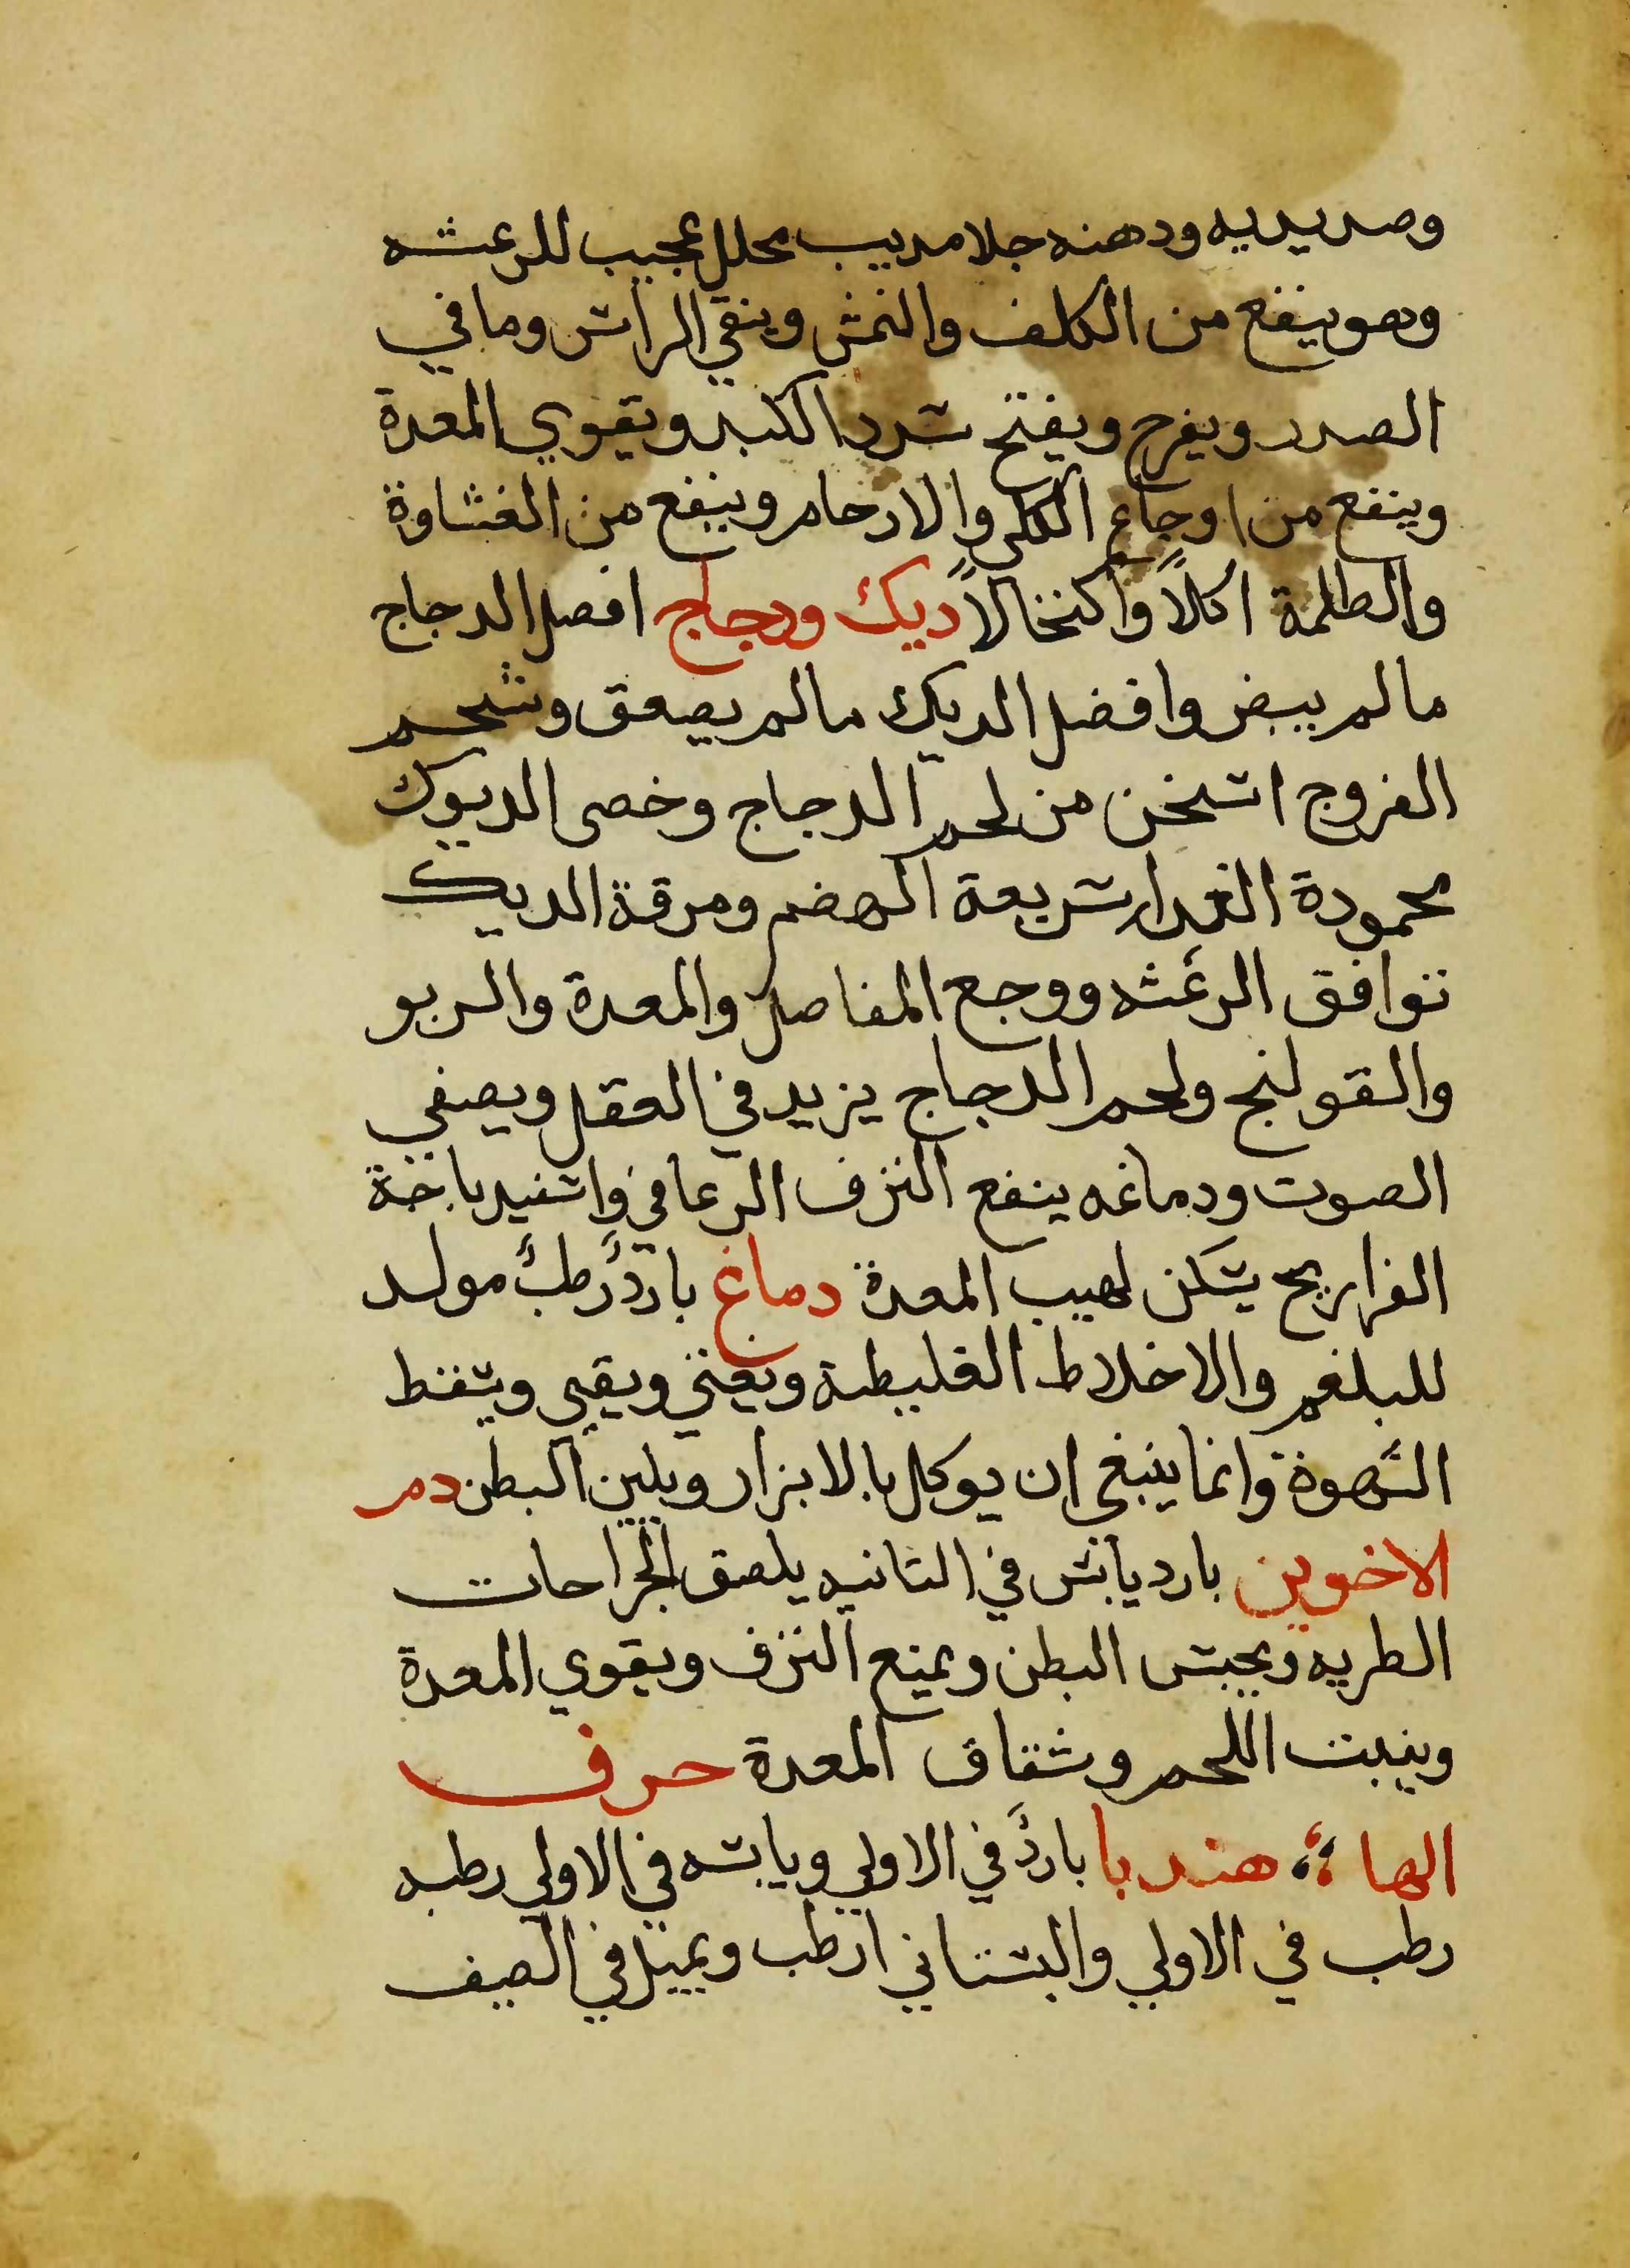 وصديديه ودهنه جلا مديب محلل عجيب للرعشه
وهو ينفع من الكلف والنمش وينقي الراس وما في
الصدر ويفرح ويفتح سدد الكبد ويقوي المعدة
وينفع من اوجاع الكلى والارحام وينفع من الغشاوة
والظلمة اكلاً واكتحالاً ديك ودجاج افضل الدجاج
مالم يبض وافضل الديك مالم يصعق وشحم
الفروج اسخن من لحم الدجاج وخصى الديوك
محمودة الغدا سريعة الهضم ومرقة الديك
توافق الرعشه ووجع المفاصل والمعدة والربو
والقولنج ولحم الدجاج يزيد في العقل ويصفي
الصوت ودماغه ينفع النزف الرعافي واسفيدباجة
الفراريج يسكن لهيب المعدة دماغ باردٌ رطبٌ مولد
للبلغم والاخلاط الغليظة ويغثي ويقيي ويسقط
الشهوة وانما ينبغي ان يوكل بالابزار ويلين البطن دم
الاخوين بارد يابس في الثانيه يلصق الجراحات
الطريه ويحبس البطن ويمنع النزف ويقوي المعدة
وينبت اللحم وشقاق المعدة حرف
الها هندبا باردٌ في الاولي ويابسه في الاولي رطبه
رطب في الاولي والبستاني ارطب ويميل في الصيف